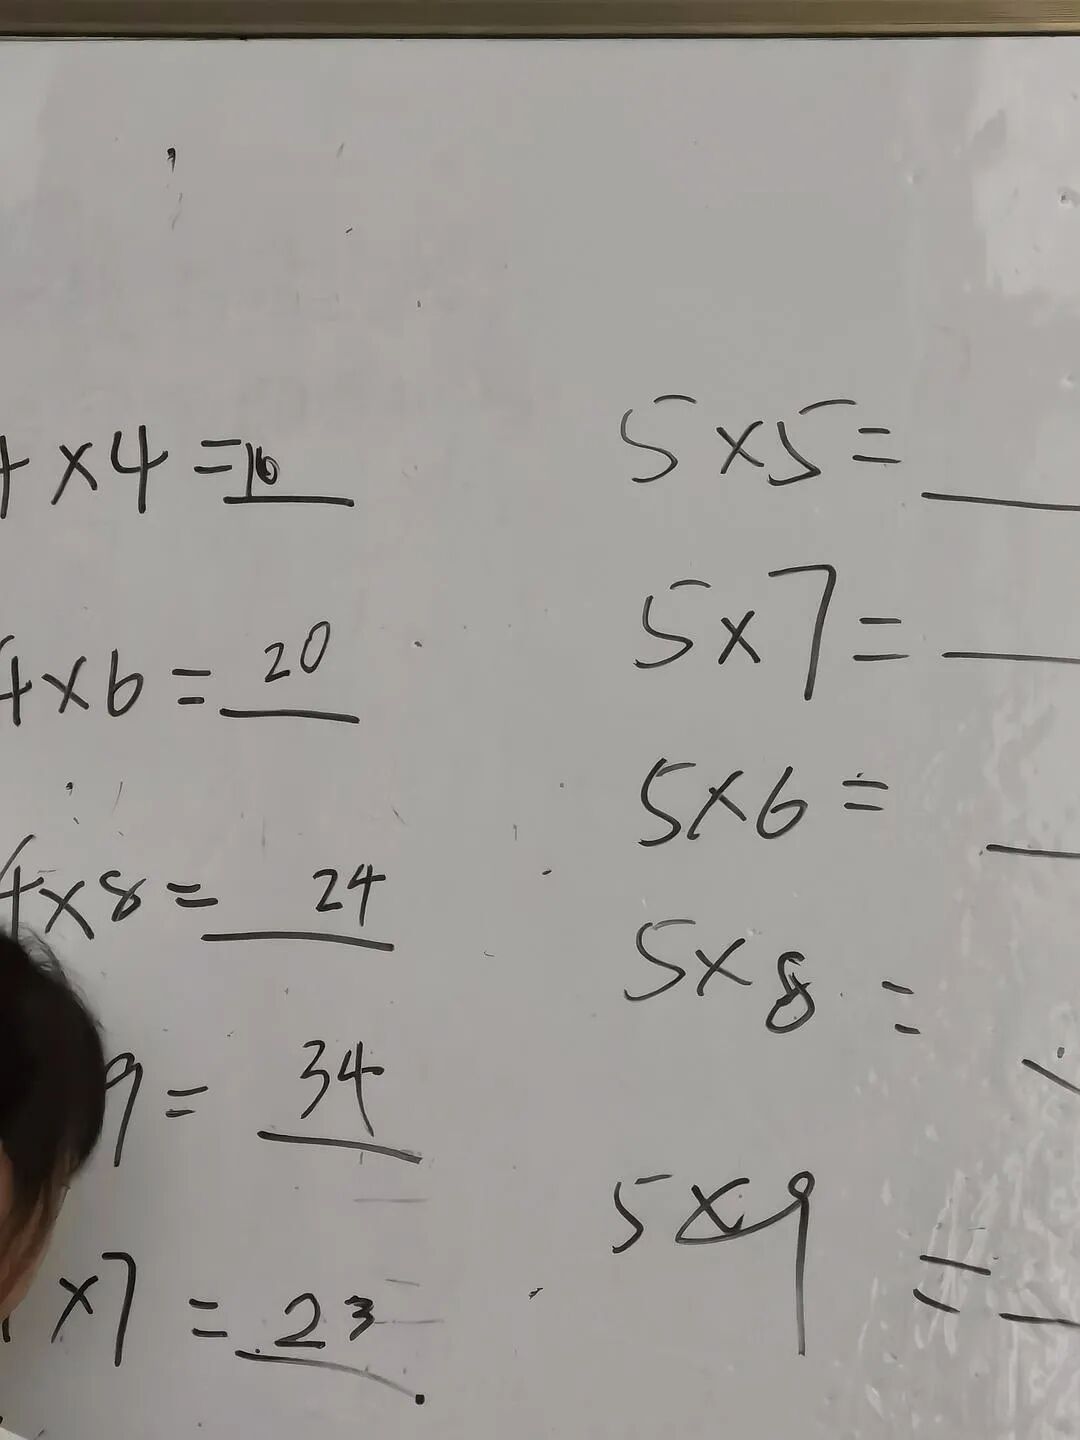 4 × 4 = 16
4 × 6 = 20
4 × 8 = 24
9 = 34
× 7 = 23
5 × 5 =
5 × 7 =
5 × 6 =
5 × 8 =
5 × 9 =